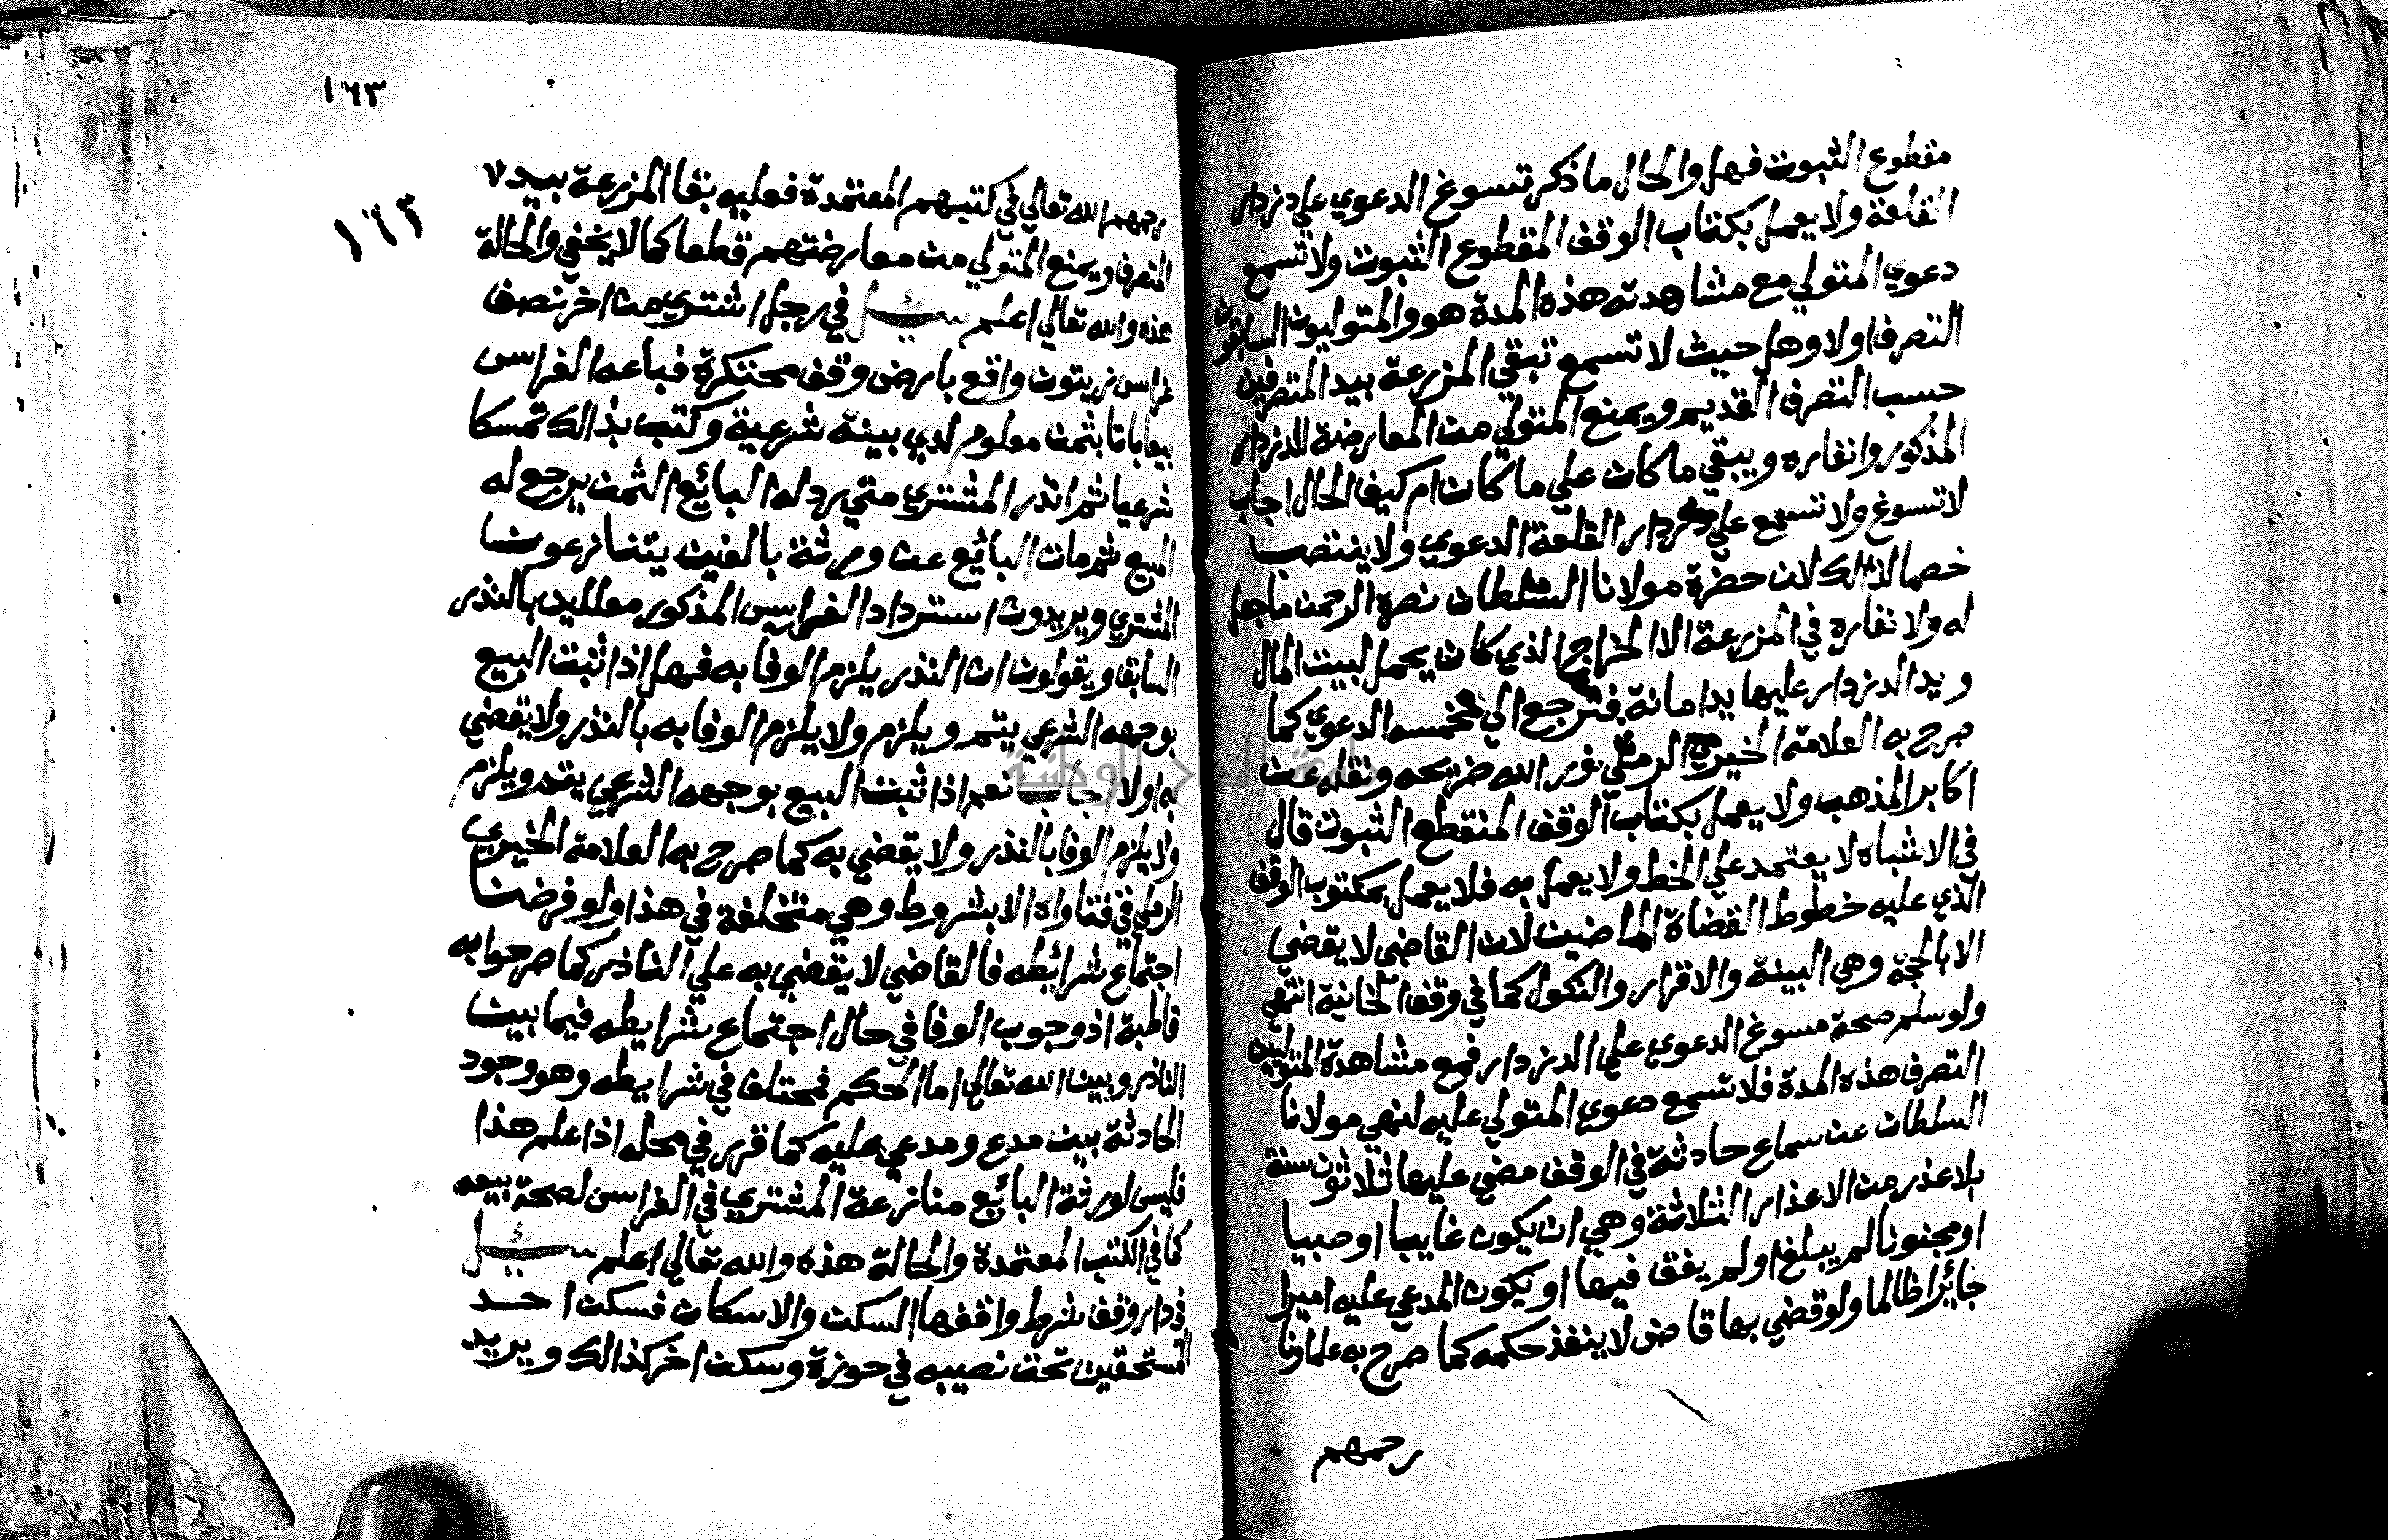 مقطوع الثبوت فهل والحال ما ذكر تسوغ الدعوي علي دزدار
القلعة ولا يعمل بكتاب الوقف المقطوع الثبوت ولا تسمع
دعوي المتولي مع مشاهدته هذه المدة هو والمتوليون السابقون
التصرف اولا وهل حيث لا تسمع تبقي المزرعة بيد المتصرفين
حسب التصرف القديم ويمنع المتولي من المعارضة للدزدار
المذكور وانفاره ويبقي ما كان علي ما كان ام كيف الحال اجاب
لا تسوغ ولا تسمع علي دزدار القلعة الدعوي ولا ينتصب
خصما لذالك لان حضرة مولانا السلطان نصره الرحمن ما جعل
له ولا نفاره في المزرعة الا الخراج الذي كان يحمل لبيت المال
ويد الدزدار عليها يد امانة فترجع الي مخمسه الدعوي كما
صرح به العلامة الخيري الرملي نور الله ضريحه ونقله عن
اكابر المذهب ولا يعمل بكتاب الوقف المنقطع الثبوت قال
في الاشباه لا يعتمد علي الخط ولا يعمل به فلا يعمل بمكتوب الوقف
الذي عليه خطوط القضاة الماضين لان القاضي لا يقضي
الا بالحجة وهي البينة والاقرار والنكول كما في وقف الخانية انتهي
ولو سلم صحة مسوغ الدعوي علي الدزدار فمع مشاهدة المتولين
التصرف هذه المدة فلا تسمع دعوي المتولي عليه لنهي مولانا
السلطان عن سماع حادثة في الوقف مضي عليها ثلاثون سنة
بلا عذر من الاعذار الثلاثة وهي ان يكون غايبا او صبيا
او مجنونا لم يبلغ او لم يفق فيها او يكون المدعي عليه اميرا
جائرا ظالما ولو قضي بها قاض لا ينفذ حكمه كما صرح به علماونا
رحمهم
١٦٣
١٦٣
رحمهم الله تعالي في كتبهم المعتمدة فعليه بقا المزرعة بيد
التصرف ويمنع المتولي من معارضتهم قطعا كما لا يخفي والحالة
هذه والله تعالي اعلم سئل في رجل اشتري من اخر نصف
غراس زيتون واقع بارض وقف محتكرة فباعه الغراس
بيعا باتا بثمن معلوم لدي بينة شرعية وكتب بذالك تمسكا
شرعيا ثم انذر المشتري متي رد له البائع الثمن يرجع له
المبيع ثم مات البائع عن ورثة بالغين يتنازعون
المشتري ويريدون استرداد الغراس المذكور معللين بالنذر
السابق ويقولون ان النذر يلزم الوفا به فهل اذا ثبت البيع
بوجهه الشرعي يتم ويلزم ولا يلزم الوفا به بالنذر ولا يقضي
به اولا اجاب نعم اذا ثبت البيع بوجهه الشرعي يتم ويلزم
ولا يلزم الوفا بالنذر ولا يقضي به كما صرح به العلامة الخيري
الرملي في فتاواه الا بشروط وهي متخلفة في هذا ولو فرضنا
اجتماع شرائطه فالقاضي لا يقضي به علي الناذر كما صرحوا به
قاطبة اذ وجوب الوفا في حال اجتماع شرايطه فيما بين
الناذر وبين الله تعالي اما الحكم فمختلف في شرايطه وهو وجود
الحادثة بين مدع ومدعي عليه كما قرر في محله اذا علم هذا
فليس لورثة البائع منازعة المشتري في الغراس لصحة بيعه
كما في الكتب المعتمدة والحالة هذه والله تعالي اعلم سئل
في دار وقف شرط واقفها السكن والاسكان فسكن احد
المستحقين تحت نصيبه في حوزة وسكن اخر كذالك ويريد